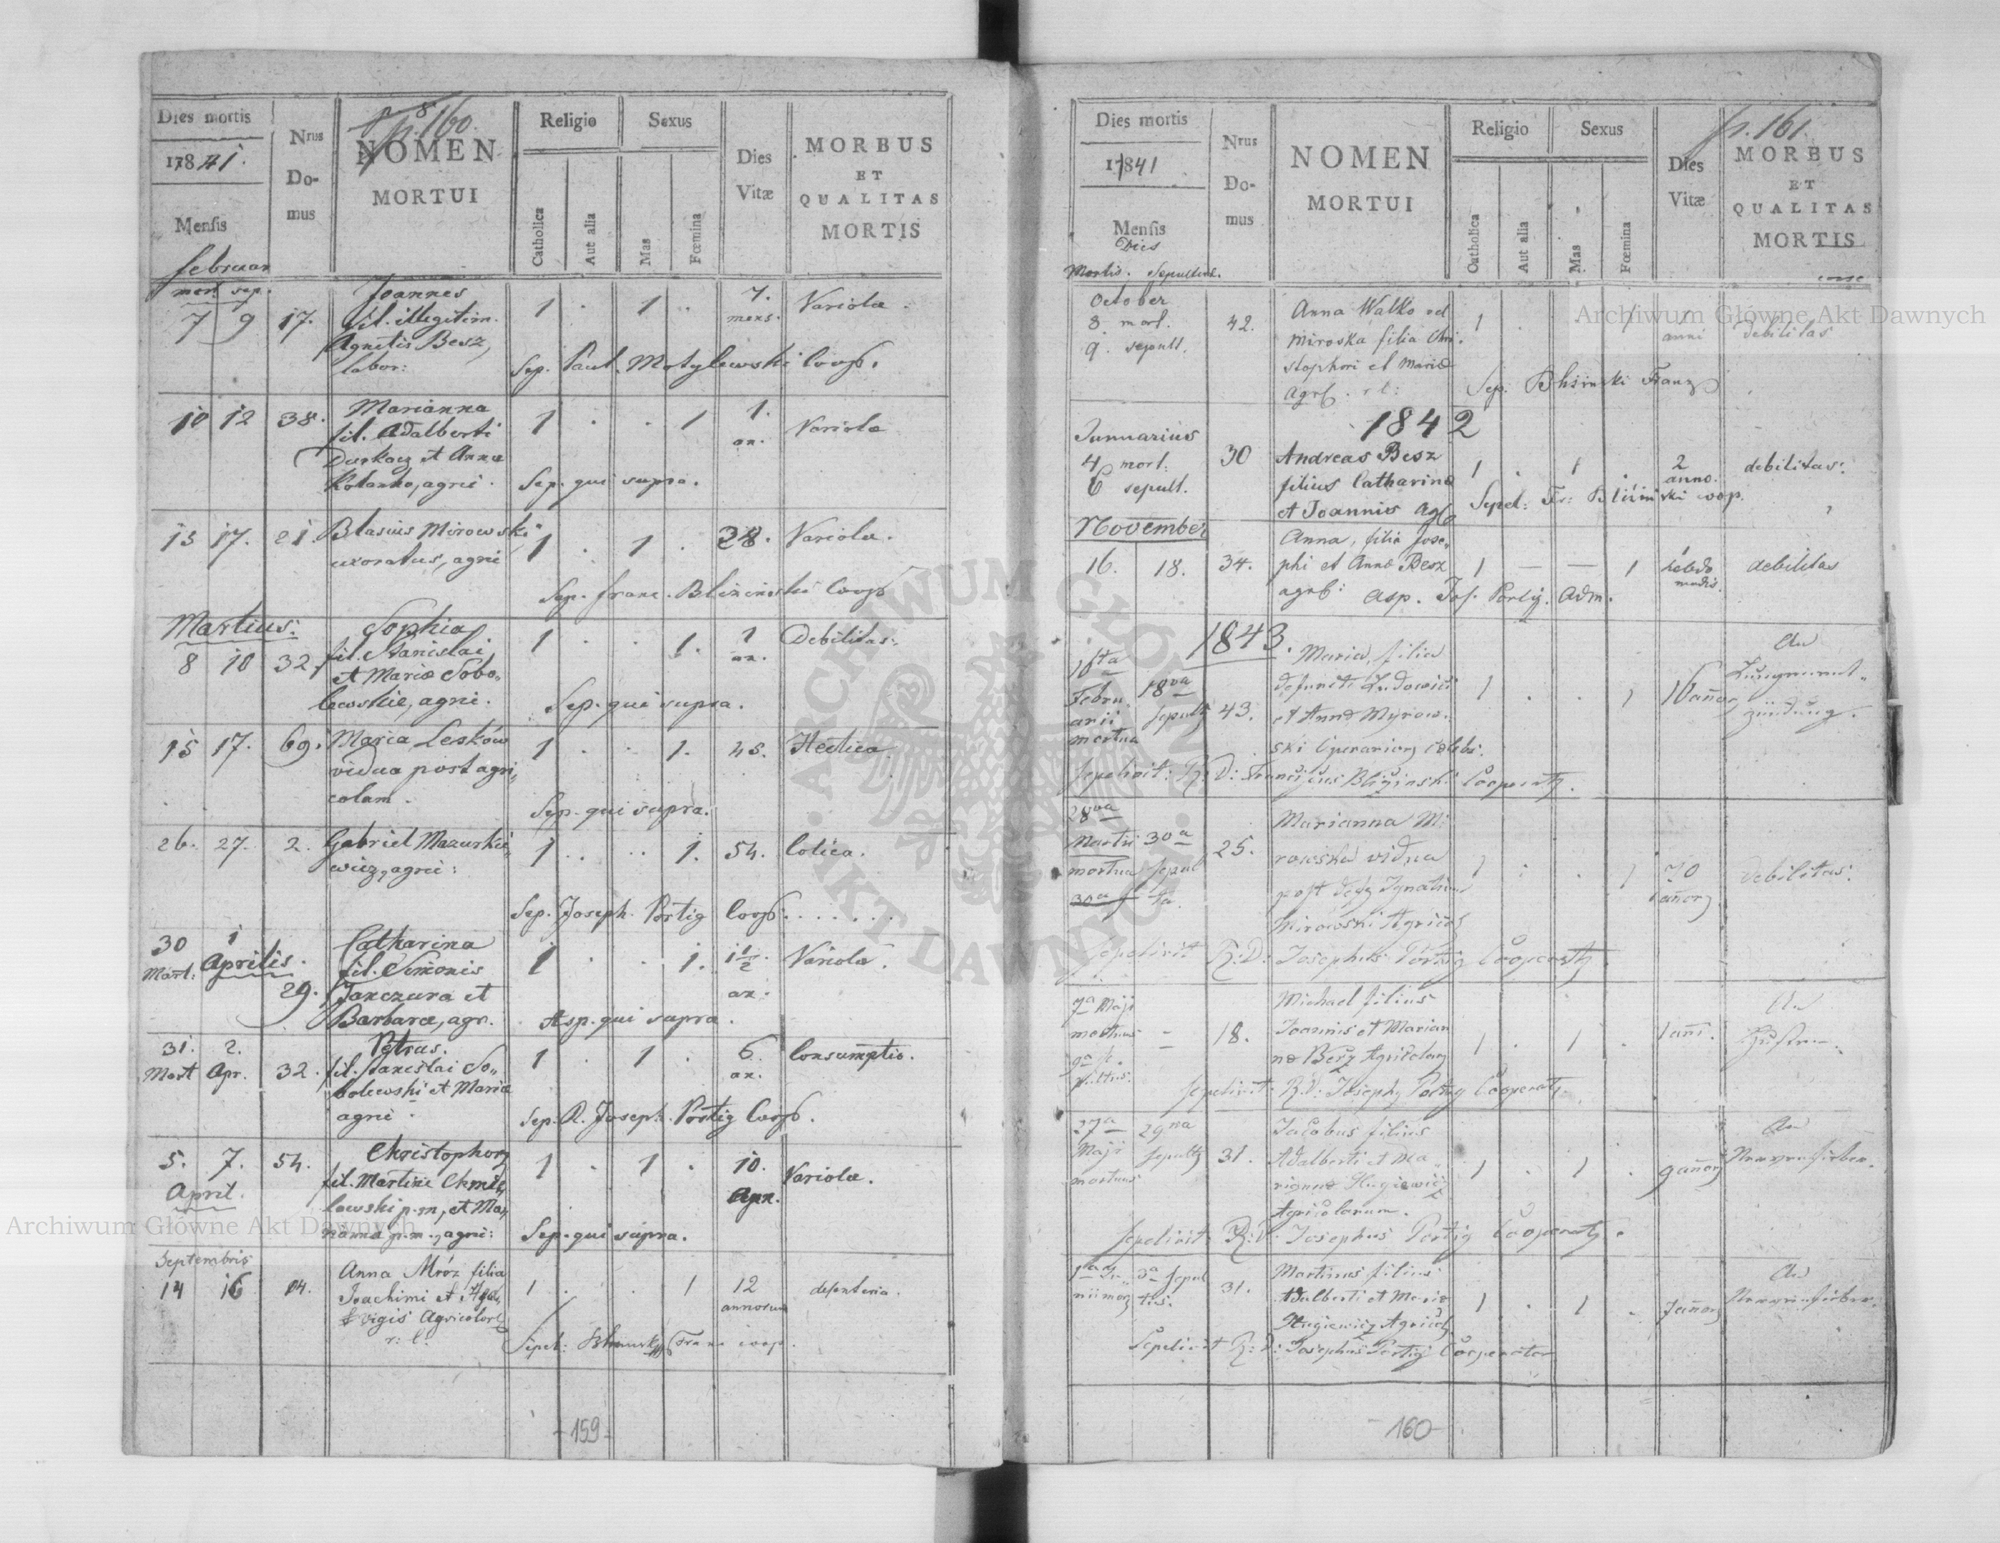 p. 160.
Dies mortis
17841.
Mensis
februar
mort. sep.
Nrus
Do-
mus
NOMEN
MORTUI
Religio
Catholica
Aut alia
Sexus
Mas
Fœmina
Dies
Vitæ
MORBUS
ET
QUALITAS
MORTIS
7 9 17. Joannes 1 . 1 . 7. Variola.
fil. illegitim. mens.
Agnetis Besz,
labor:
Sep. Paul. Motylewski Coop.
10 12 38. Marianna 1 . . 1 1. Variola
fil. Adalberti an.
et Anna
agric.
Sep. qui supra.
13 17. 21 Blasius Mirowski 1 . 1 . 28. Variola.
uxoratus, agric
Sep. franc. Blizinski Coop
Martius:
8 10 32. Sophia 1 . . 1. 1 Debilitas.
fil. Stanislai an.
et Mariæ Sobo-
lewskie, agric.
Sep. qui supra.
15 17. 69. Maria Lesków 1 . . 1. 45. Hectica
vidua post agri-
colam.
Sep. qui supra.
26. 27. 2. Gabriel Mazurkie- 1 . . . 1. 54. Colica.
wicz, agric:
Sep. Joseph. Portig Coop: . . . . . .
30 1 Catharina 1 . . 1. 1 1/2 Variola.
Mart: Aprilis. fil. Simonis an.
29. Janczura et
Barbaræ, agr.
Asp. qui supra.
31. 2. Petrus. 1 . 1 . 6. Consumptio.
Mart Apr. 32. fil. Stanislai So- an.
bolewski et Mariæ
agric.
Sep. R. Joseph. Portig Coop.
5. 7. 54. Christophorus 1 . 1 . 10. Variola.
April. fil. Martini Chmie-
lowski p.m, et Ma-
rianna p.m., agric:
Sep. qui supra.
Septembris
14 16 Anna Mróz filia 1 . . 1 12 desenteria.
Joachimi et Hed- annorum
vigis Agricolar
r: l.
Sepel: Franc coop.
- 159 -
p. 161.
Dies mortis
17841
Mensis
Dies
Mortis. Sepulturæ.
Nrus
Do-
mus
NOMEN
MORTUI
Religio
Catholica
Aut alia
Sexus
Mas
Fœmina
Dies
Vitæ
MORBUS
ET
QUALITAS
MORTIS
October
8. mort. 42. Anna Walko od 1 . . 1 1 debilitas
9. sepult. Miroska filia Chri- anni
stophori et Mariæ
Agr. r l:
Sep. Franz
1842
Januarius
4 mort: 30 Andreas Besz 1 . 1 . 2 debilitas.
6 sepult. filius Catharinæ anno.
et Joannis Agr
Sepel: Fr: Bliziński coop.
November
16. 18. 34. Anna, filia Jose- 1 — — 1 1 debilitas
phi et Annæ Besz hebdo
agr: madis.
Asp. Jos. Portig. Adm.
1843.
16ta 18va 43. Maria, filia 1 . . 1 16 annor An
Febru- sepult defuncti Ludovici
arii et Annæ Myrow-
mortua ski Operarior cœlebs.
Sepelivit: R: D: Franciscus Bliziński Cooperator.
28va 30a 25. Marianna Mi- 1 . . 1 70 debilitas:
Martii sepul rowska vidua annor
mortua ta. post Ignatium
30a Mirowski Agricol
Sepelivit R: D: Josephus Portig Cooperator.
7a Maji — 18. Michael filius 1 . 1 . 1 ann. An
mortuus Joannis et Marian
9a se- næ Besz Agricolar
pultus.
Sepelivit R. D: Josephus Portig Cooperator.
27a 29na 31. Jacobus filius 1 . 1 . 9 annor An
Maji sepult Adalberti et Ma- Nervenfieber.
mortuus riannæ
Agricolarum.
Sepelivit: R: D. Josephus Portig Cooperator.
1a Ju- 3a sepul 31. Martinus filius 1 . 1 . 7 annor An
nii mor tus. Adalberti et Mariæ Nervenfieber.
Agricol
Sepelivit R: D: Josephus Portig Cooperator
- 160 -
Archiwum Główne Akt Dawnych
Archiwum Główne Akt Dawnych
ARCHIWUM GŁÓWNE · AKT DAWNYCH ·